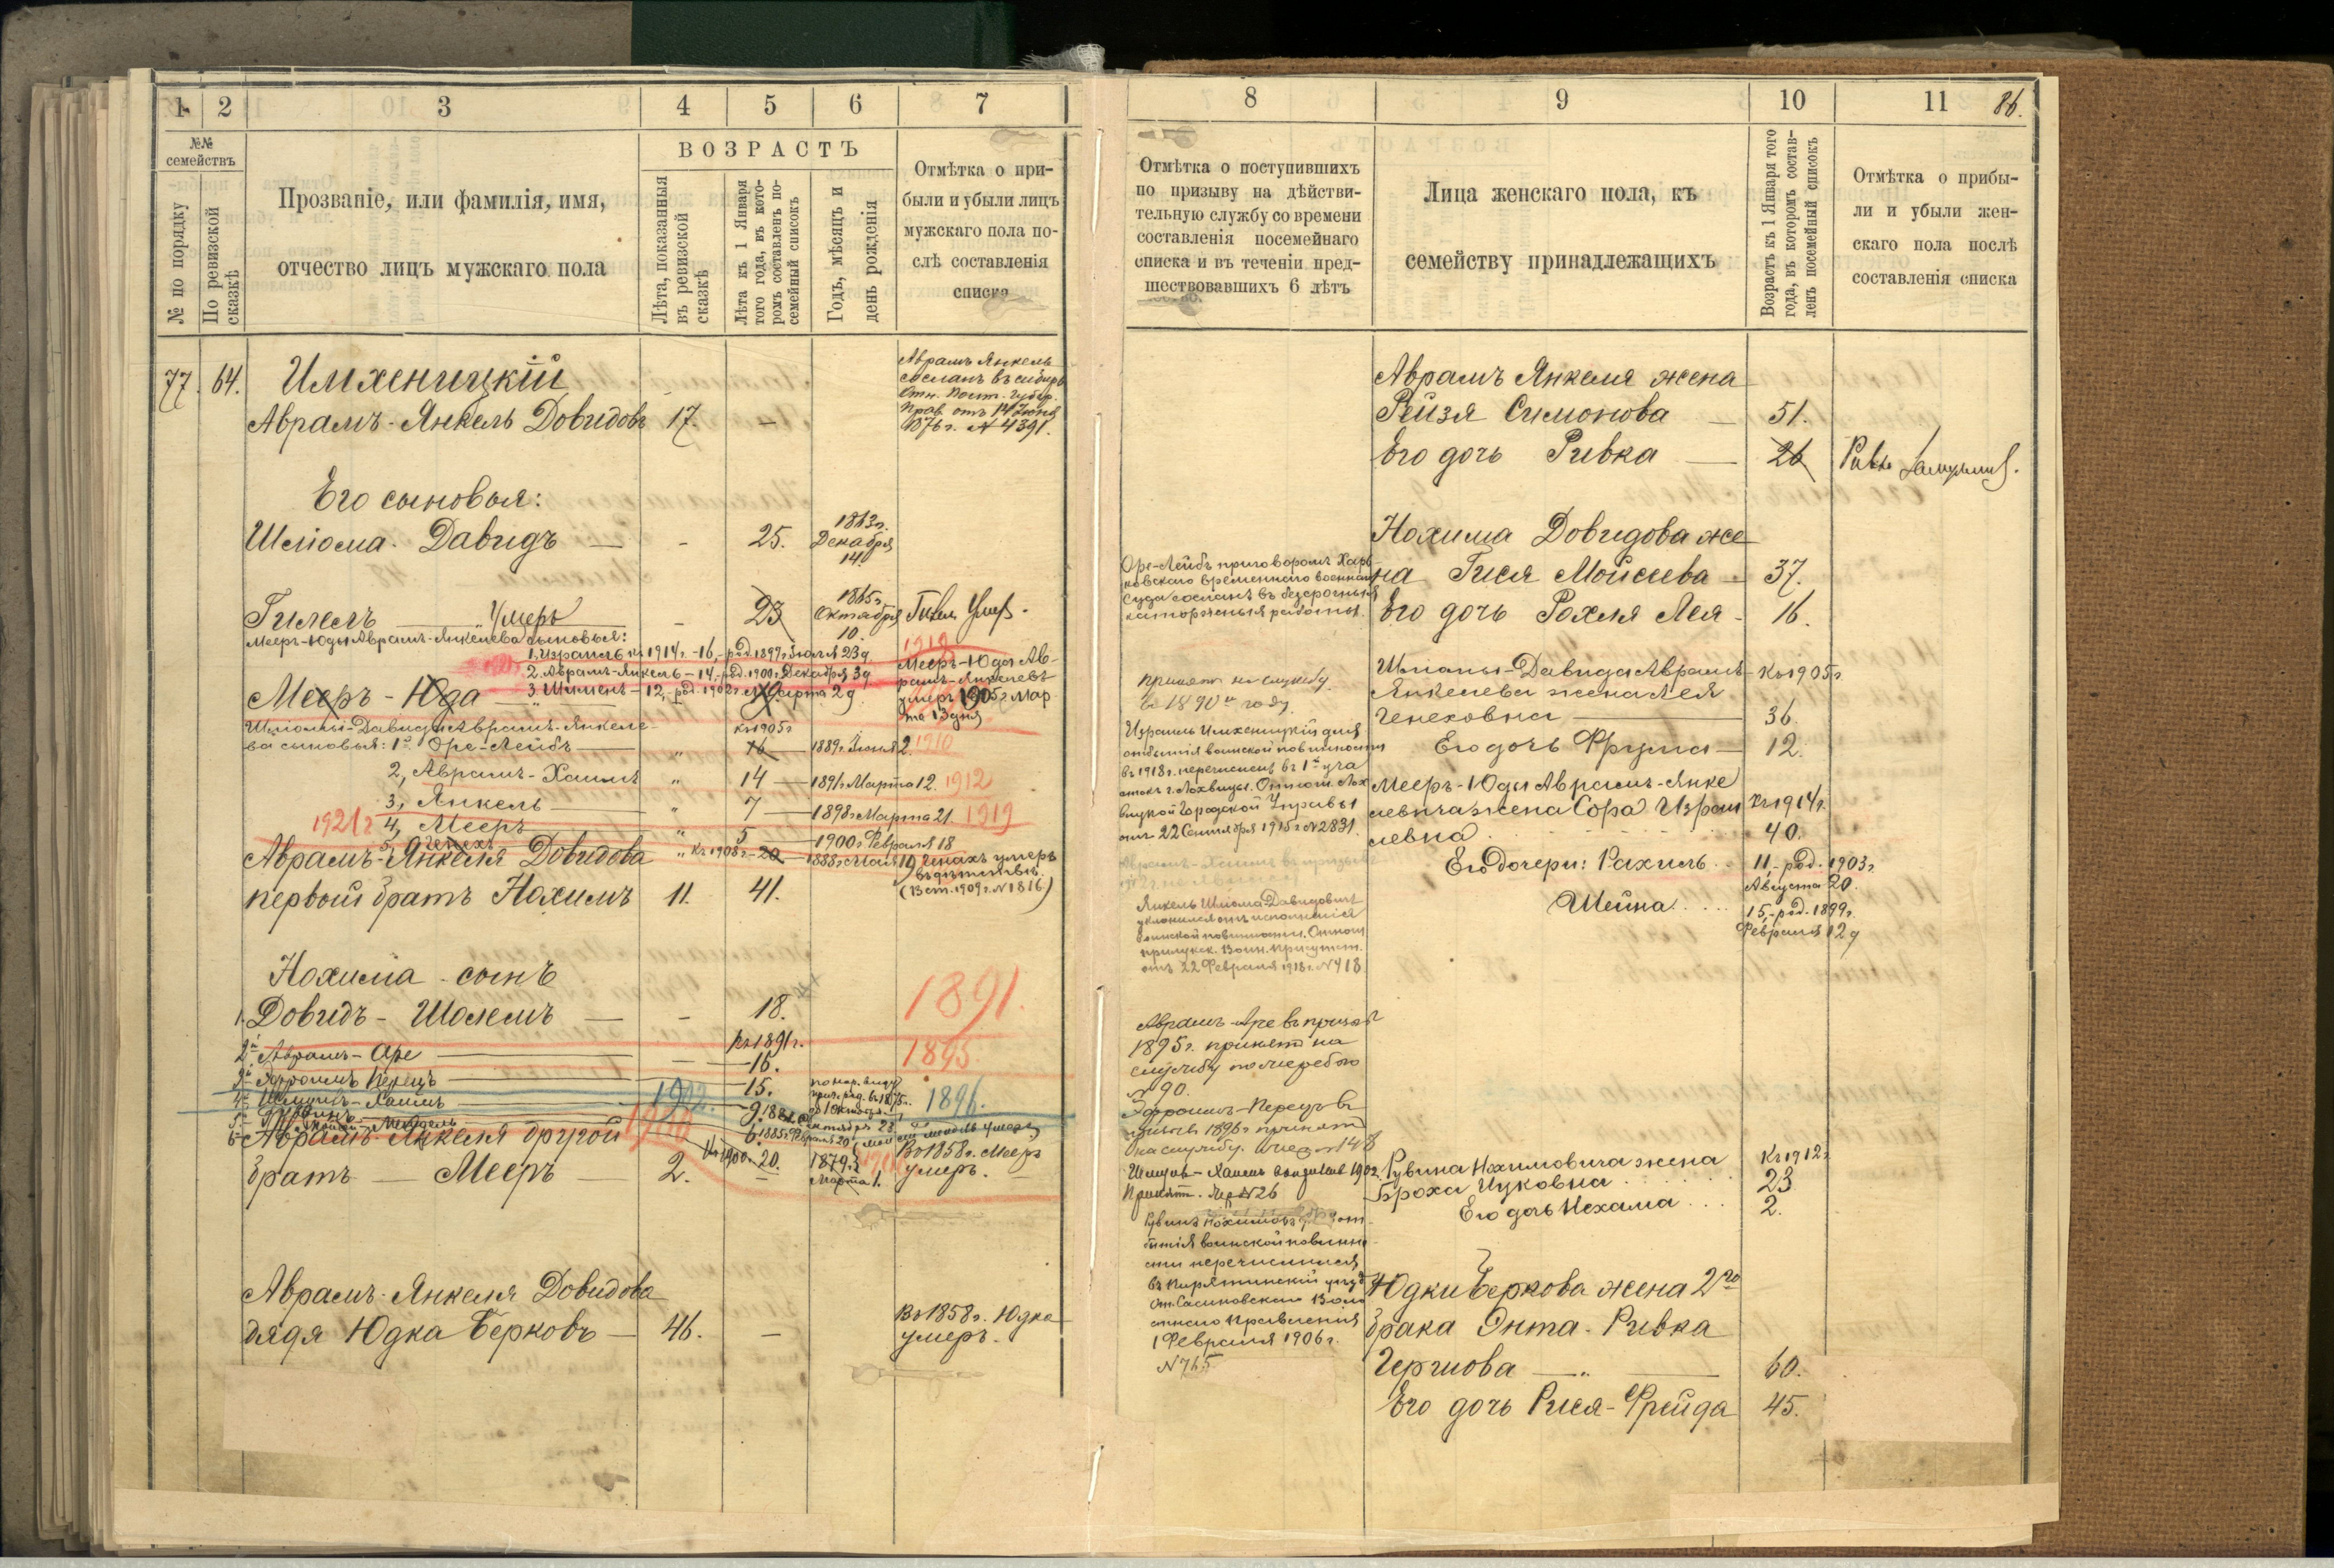 1 2 3 4 5 6 7
№№ семействъ
№ по порядку
По ревизской сказкѣ
Прозваніе, или фамилія, имя,
отчество лицъ мужскаго пола
ВОЗРАСТЪ
Лѣта, показанныя
въ ревизской
сказкѣ
Лѣта къ 1 Января
того года, въ кото-
ромъ составленъ по-
семейный списокъ
Годъ, мѣсяцъ и
день рожденія
Отмѣтка о при-
были и убыли лицъ
мужскаго пола по-
слѣ составленія
списка
77. 64. Имхеницкій
Аврамъ-Янкель Довидовъ 17. —
Аврамъ Янкель
сосланъ въ сибирь
Отн. Полт. Губер.
Прав. отъ 14 Іюня
1876 г. № 4391.
Его сыновья:
Шліома-Давидъ — - 25. 1863 г.
Декабря
14
Гилель — Умеръ - 23 1865 г.
Октября
10.
Мееръ-Юды Аврамъ-Янкелева сыновья:
1, Израиль къ 1914 г. - 16, - род. 1897 г. Іюля 23 д.
2. Аврамъ-Янкель - 14, - род. 1900 г. Декабря 3 д
3. Шлиенъ - 12, - род. 1902 г. Марта 2 д
Мееръ-Юда
1918
Мееръ-Юда Ав-
рамъ-Янкелевъ
умеръ 1905 г. Мар
та 13 дня
Шліомы-Давида Аврамъ-Янкеле-
ва сыновья: 1й Оре-Лейбъ — къ 1905 г
16 — 1889 г. Іюня 2. 1910
2, Аврамъ-Хаимъ 14 — 1891 г Марта 12. 1912
3, Янкель — 7 — 1898 г Марта 21. 1919
1921 г 4, Мееръ 5 — 1900 г Февраля 18
5, Чепехъ къ 1908 г - 20 - 1888 г Мая 19
Аврамъ-Янкеля Довидова
умеръ
въ дѣтствѣ.
(Вст. 1909 г. № 1816)
первый братъ Нохимъ 11. 41.
Нохима сынъ
1. Довидъ-Шолемъ — - 18. 1891.
къ 1891 г.
2й Аврамъ-Оре — — 16. 1895
3й Эфроимъ Перецъ — 15. 1896.
4й Шмуилъ-Хаимъ 1902. 9
5й Рувинъ 1906
Аврамъ-Янкеля другой
братъ — Мееръ — 2. къ 1900 г. 20. 1879 г.
Марта 1.
Въ 1858 г. Мееръ
умеръ.
Аврамъ-Янкеля Довидова
дядя Юдка Берковъ — 46. —
Въ 1858 г. Юдка
умеръ.
8 9 10 11 86.
Отмѣтка о поступившихъ
по призыву на дѣйстви-
тельную службу со времени
составленія посемейнаго
списка и въ теченіи пред-
шествовавшихъ 6 лѣтъ
Лица женскаго пола, къ
семейству принадлежащихъ
Возрастъ къ 1 Января того
года, въ которомъ состав-
ленъ посемейный списокъ
Отмѣтка о прибы-
ли и убыли жен-
скаго пола послѣ
составленія списка
Аврамъ Янкеля жена
Рейзя Симонова — 51.
Его дочь Ривка — 26
Нохима Довидова же
на Гися Мойсеева — 37.
Его дочь Рохля Лея - 16.
Оре-Лейбъ приговоромъ Харь-
ковскаго временнаго военнаго
Суда сосланъ въ безсрочныя
каторжныя работы.
Шліомы-Давида Аврамъ-
Янкелева жена Лея
Ченеховна — 36. Къ 1905 г
Его дочь Фрума — 12.
принятъ на службу
въ 1890 м году.
Израиль Имхеницкій для
отбытія воинской повинности
въ 1918 г. перечисленъ въ 1й уча
стокъ г. Лохвицы. Отнош. Лох
вицкой Городской Управы
отъ 22 Сентября 1915 г № 2831.
Мееръ-Юды Аврамъ-Янке
левича жена Сора Израи
левна Къ 1914 г.
40.
Его дочери: Рахиль .. 11, - род. 1903 г.
Августа 20.
Шейна .... 15, - род. 1899 г.
Февраля 12 д
Янкель Шліома-Давидовичъ
уклонился отъ исполненія
воинской повинности. Отнош
прилукск. Воин. присутств.
отъ 22 Февраля 1918 г. № 418
Аврамъ-Оре въ призывъ
1895 г. принятъ на
службу по жеребью
№ 90.
Эфроимъ-Перецъ въ
призывъ 1896 г принятъ
на службу. Жер. № 148
Шмуилъ-Хаимъ 1902
Принят. Жер № 26
Рувина Нохимовича жена
Броха Ицковна ..... Къ 1912 г
23
Его дочь Нехама ... 2.
Рувинъ Нохимовъ для от
бытія воинской повинно
сти перечислился
въ Пирятинскій уѣздъ
От. Сасиновскаго Воло
стнаго Правленія
1 Февраля 1906 г.
№ 765
Юдки Беркова жена 2го
брака Энта-Ривка
Гершова — 60.
Его дочь Рися-Фрейда 45.